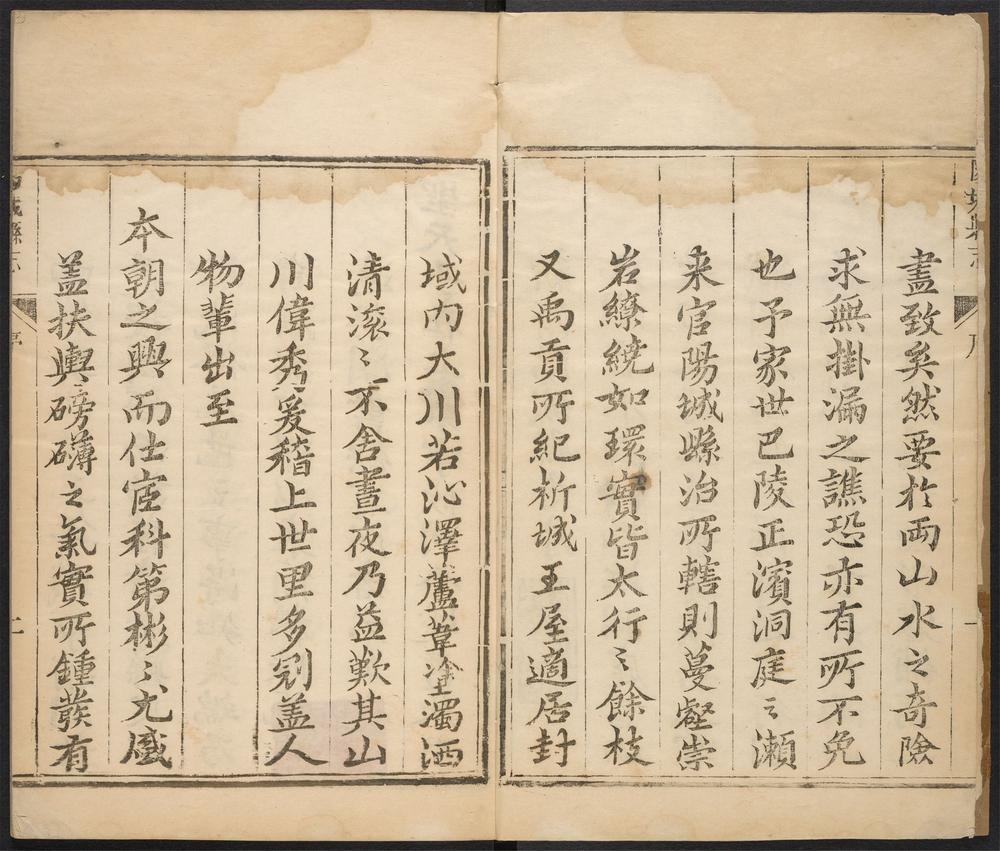 盡致矣然要於两山水之奇險
求無掛漏之譙恐亦有所不免
也予家世巴陵正濱洞庭之瀬
来官陽城縣治所轄則蔓壑崇
岩繚繞如環實皆太行之餘枝
又禹貢所紀析城王屋適居封
域内大川若沁澤蘆葦塗濁洒
清滚〻不舍晝夜乃益歎其山
川偉秀爰稽上世里多冠盖人
物輩出至
本朝之興而仕宦科第彬〻尤盛
盖扶輿磅礴之氣實所鍾發有
城縣志
二